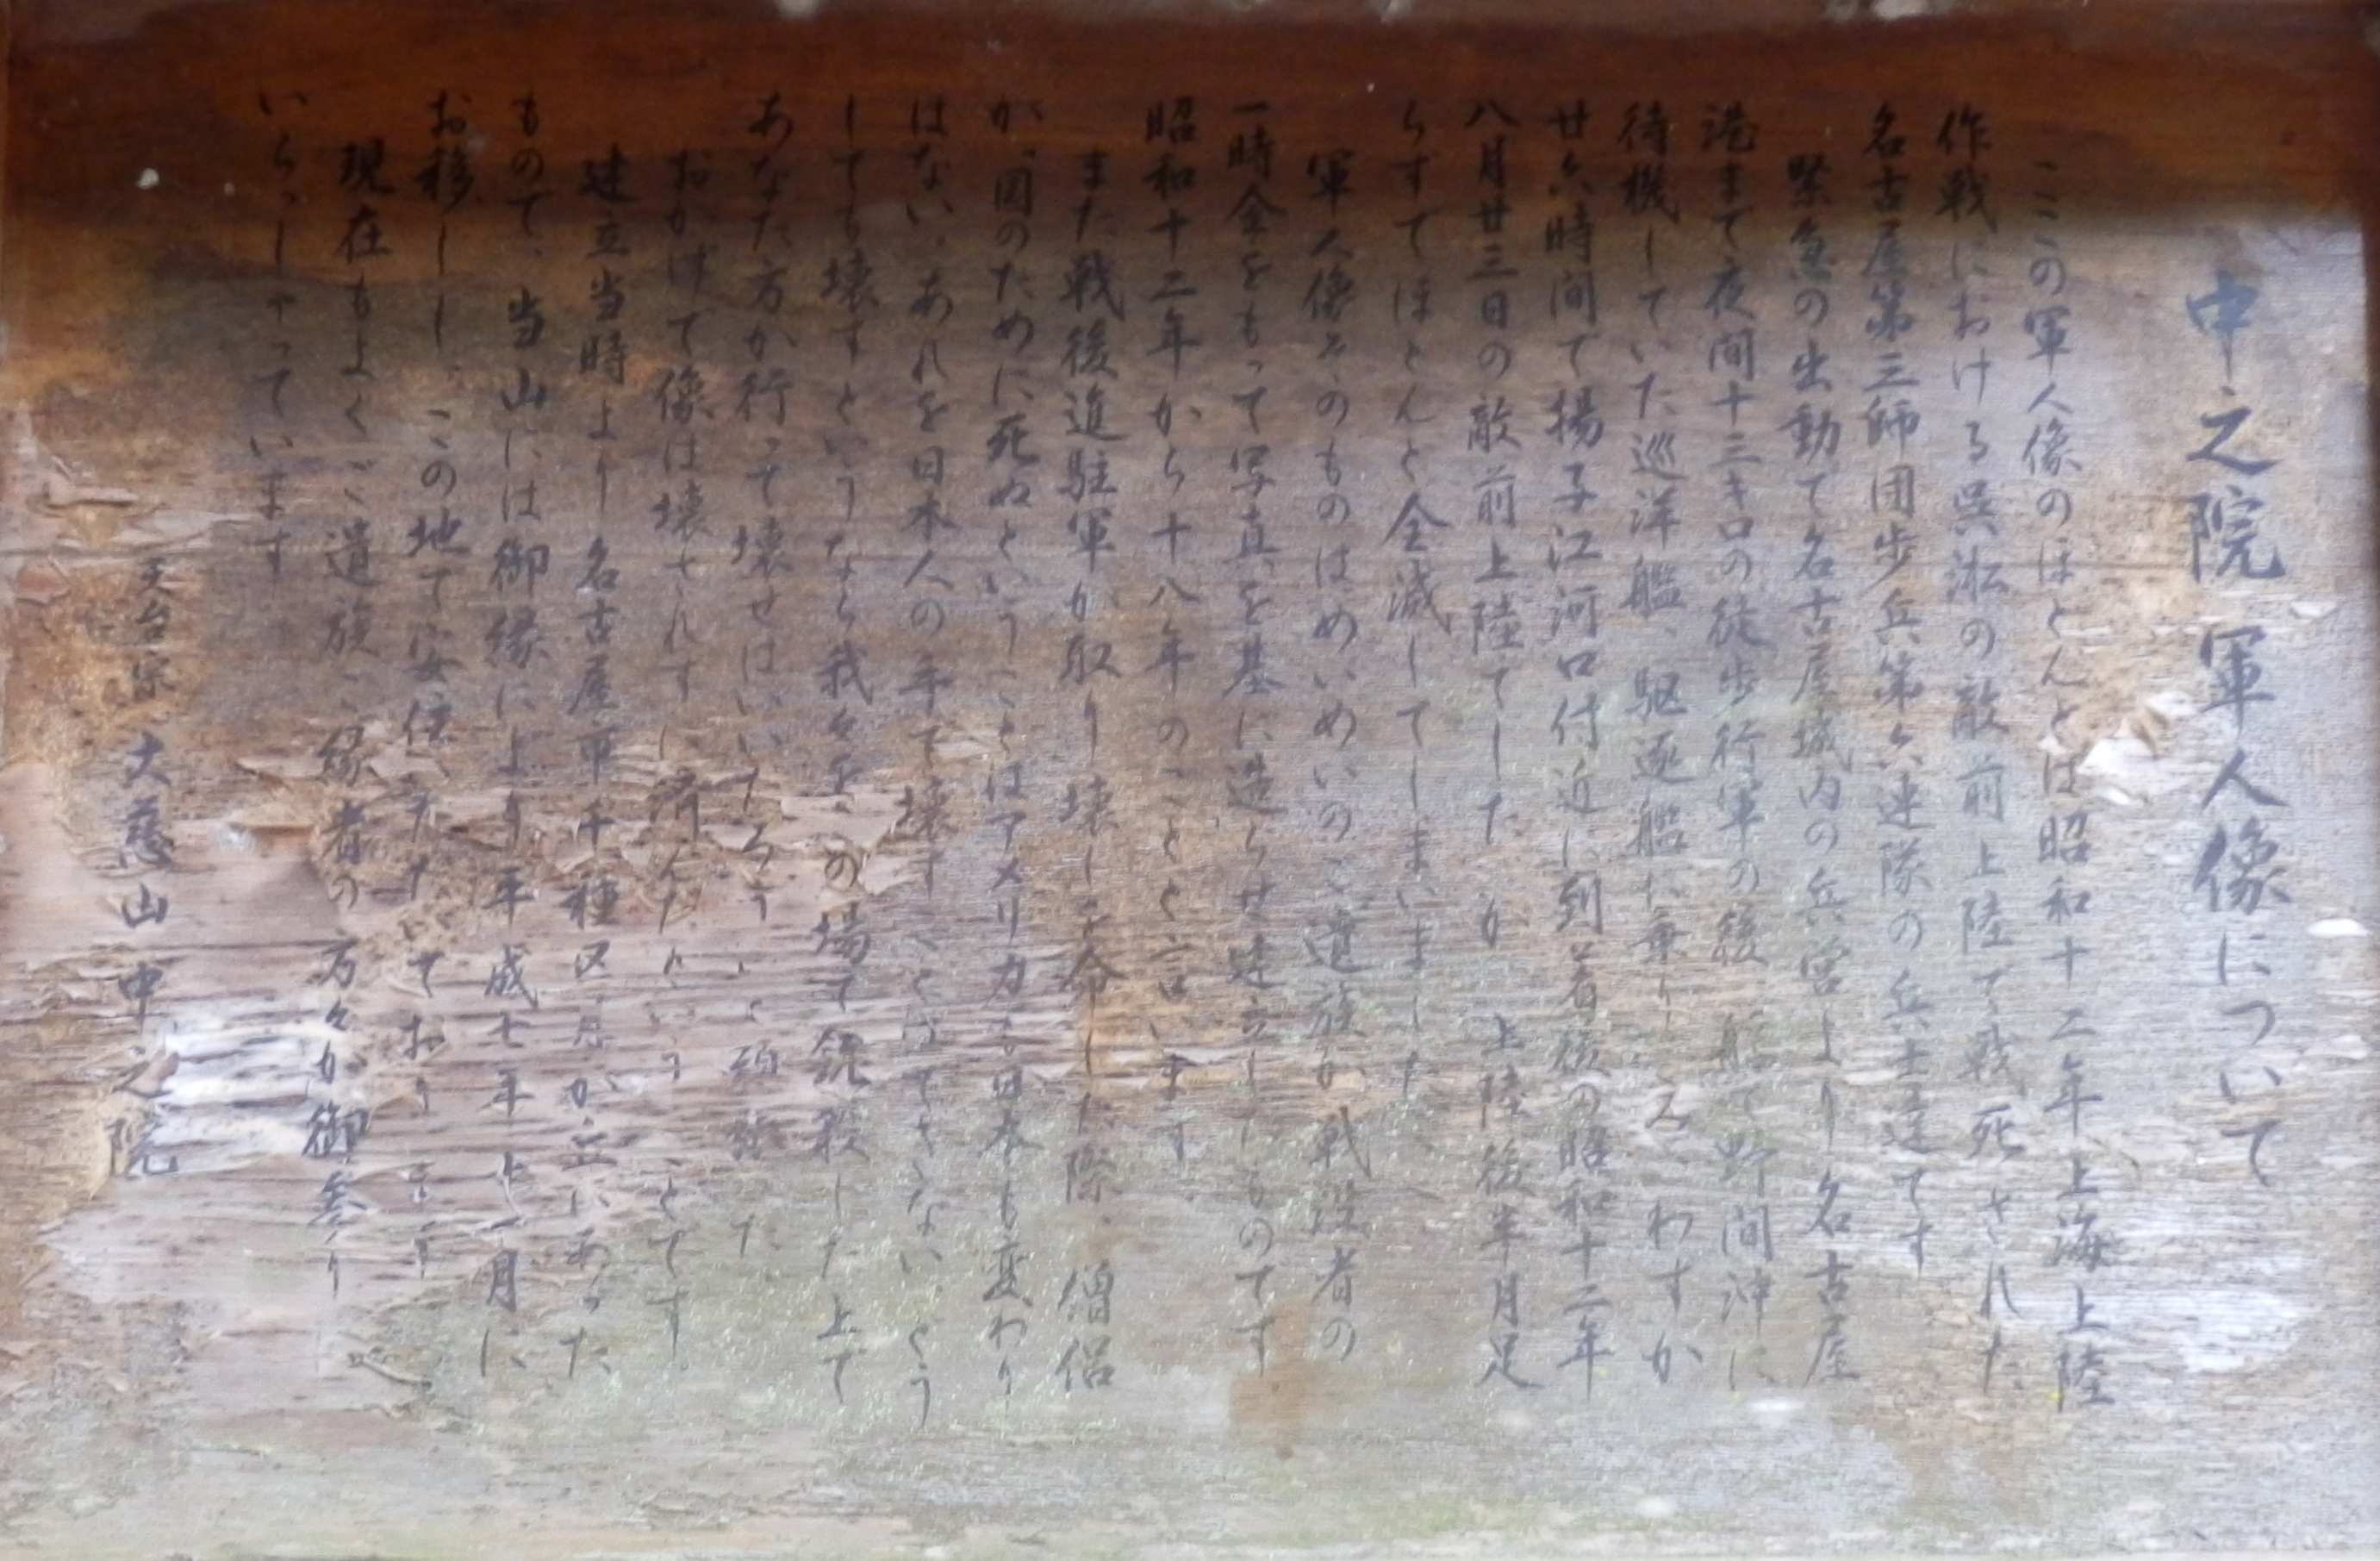 中之院 軍人像について
ここの軍人像のほとんどは昭和十二年上海上陸
作戦における呉淞の敵前上陸で戦死された
名古屋第三師団歩兵第六連隊の兵士達です
緊急の出動で名古屋城内の兵営より名古屋
港まで夜間十三キロの徒歩行軍の後 艦で野間沖に
待機していた巡洋艦、駆逐艦に乗り わずか
廿六時間で揚子江河口付近に到着後の昭和十二年
八月廿三日の敵前上陸でしたが 上陸後半月足
らずでほとんど全滅してしまいました
軍人像そのものはめいめいのご遺族が戦没者の
一時金をもって写真を基に造らせ建立したものです
昭和十二年から十八年のことと言います
また戦後進駐軍が取り壊しを命じた際、僧侶
が、国のために死ぬということはアメリカも日本も変わり
はない、あれを日本人の手で壊す ことはできない、どう
しても壊すというなら我々を の場で銃殺した上で
あなた方が行って壊せばいいだろう 頑 た
おかげで像は壊されずに済んだという ことです。
建立当時より名古屋市千種区月が丘にあった
ものですが、当山には御縁により平成七年 月に
お移しし、この地で安 いただいております
現在もよくご遺族、ご縁者の 方々が御参り
いらっしゃっています
天台宗 大慈山 中之院